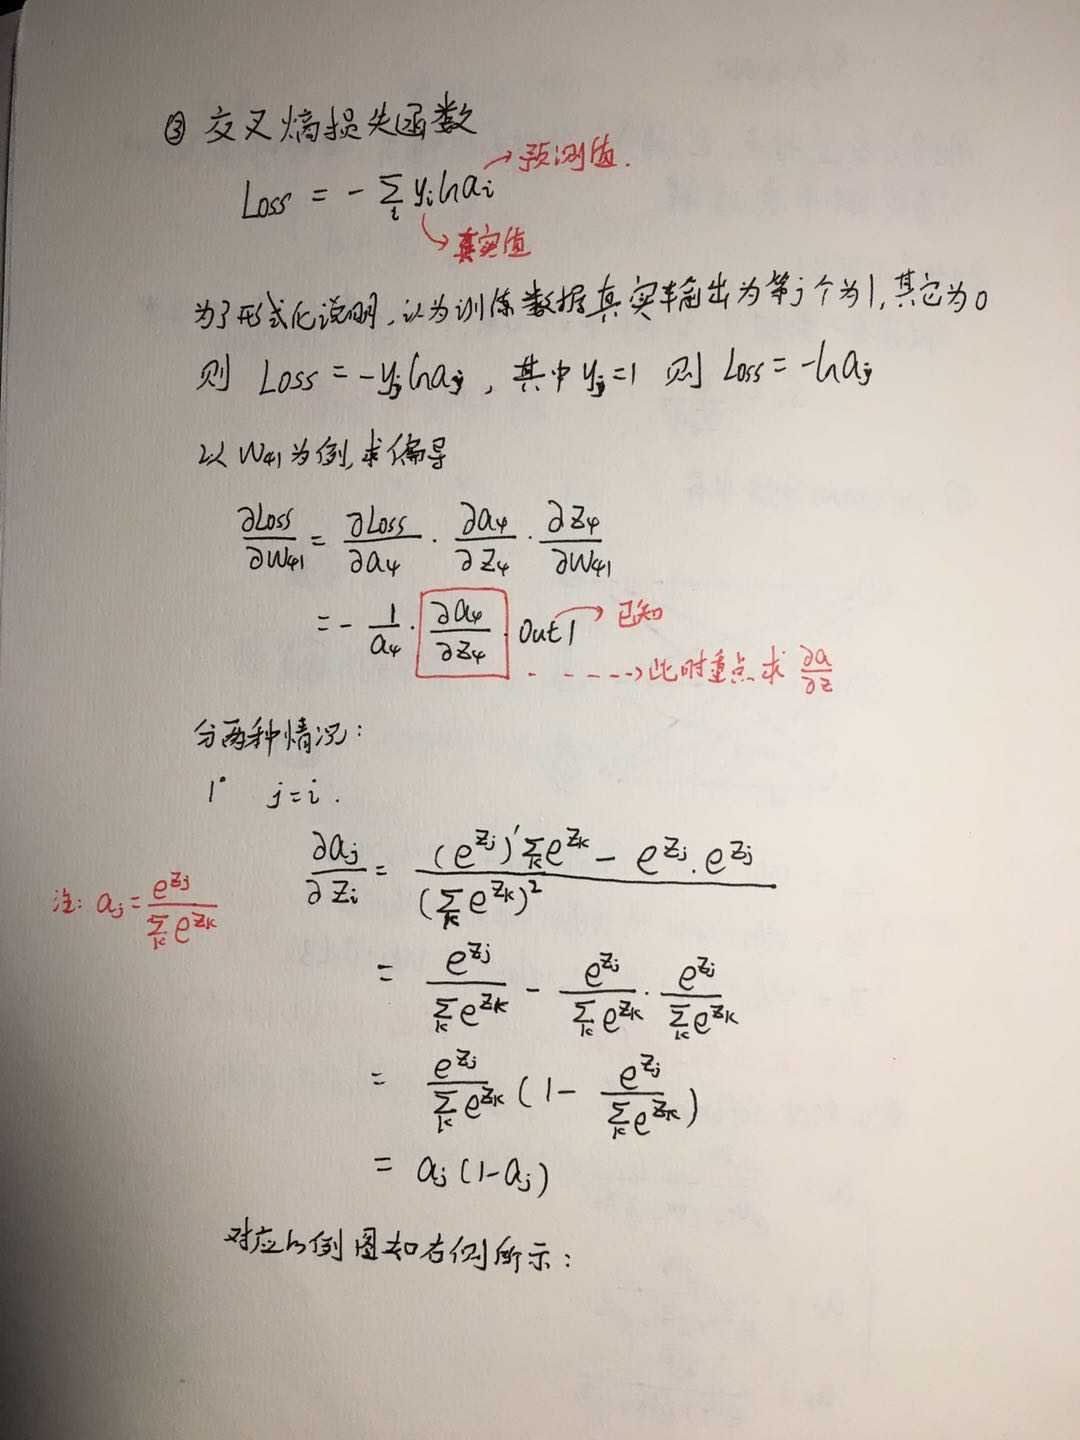 ③ 交叉熵损失函数
Loss = - ∑_i y_i ln a_i → 预测值.
→ 真实值
为了形式化说明,认为训练数据真实输出为第j个为1,其它为0
则 Loss = -y_j ln a_j , 其中 y_j=1 则 Loss = -ln a_j
以 W_41 为例,求偏导
∂Loss/∂W_41 = ∂Loss/∂a_4 · ∂a_4/∂z_4 · ∂z_4/∂W_41
= - 1/a_4 · ∂a_4/∂z_4 · out1 → 已知
- - - - - → 此时重点求 ∂a/∂z
分两种情况:
1° j=i .
∂a_j/∂z_i = ((e^{z_j})' ∑_k e^{z_k} - e^{z_j} · e^{z_j})/(∑_k e^{z_k})^2
注: a_j = e^{z_j}/∑_k e^{z_k}
= e^{z_j}/∑_k e^{z_k} - e^{z_j}/∑_k e^{z_k} · e^{z_j}/∑_k e^{z_k}
= e^{z_j}/∑_k e^{z_k} (1 - e^{z_j}/∑_k e^{z_k})
= a_j (1-a_j)
对应的例图如右侧所示: